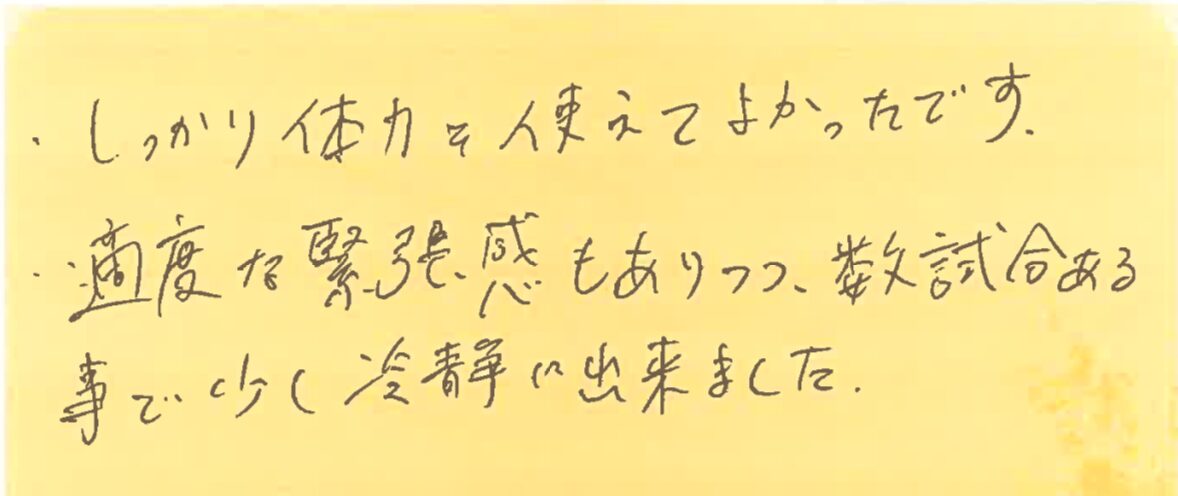 ・しっかり体力を使えてよかったです.
・適度な緊張感もありつつ、数試合ある
事で少し冷静に出来ました.